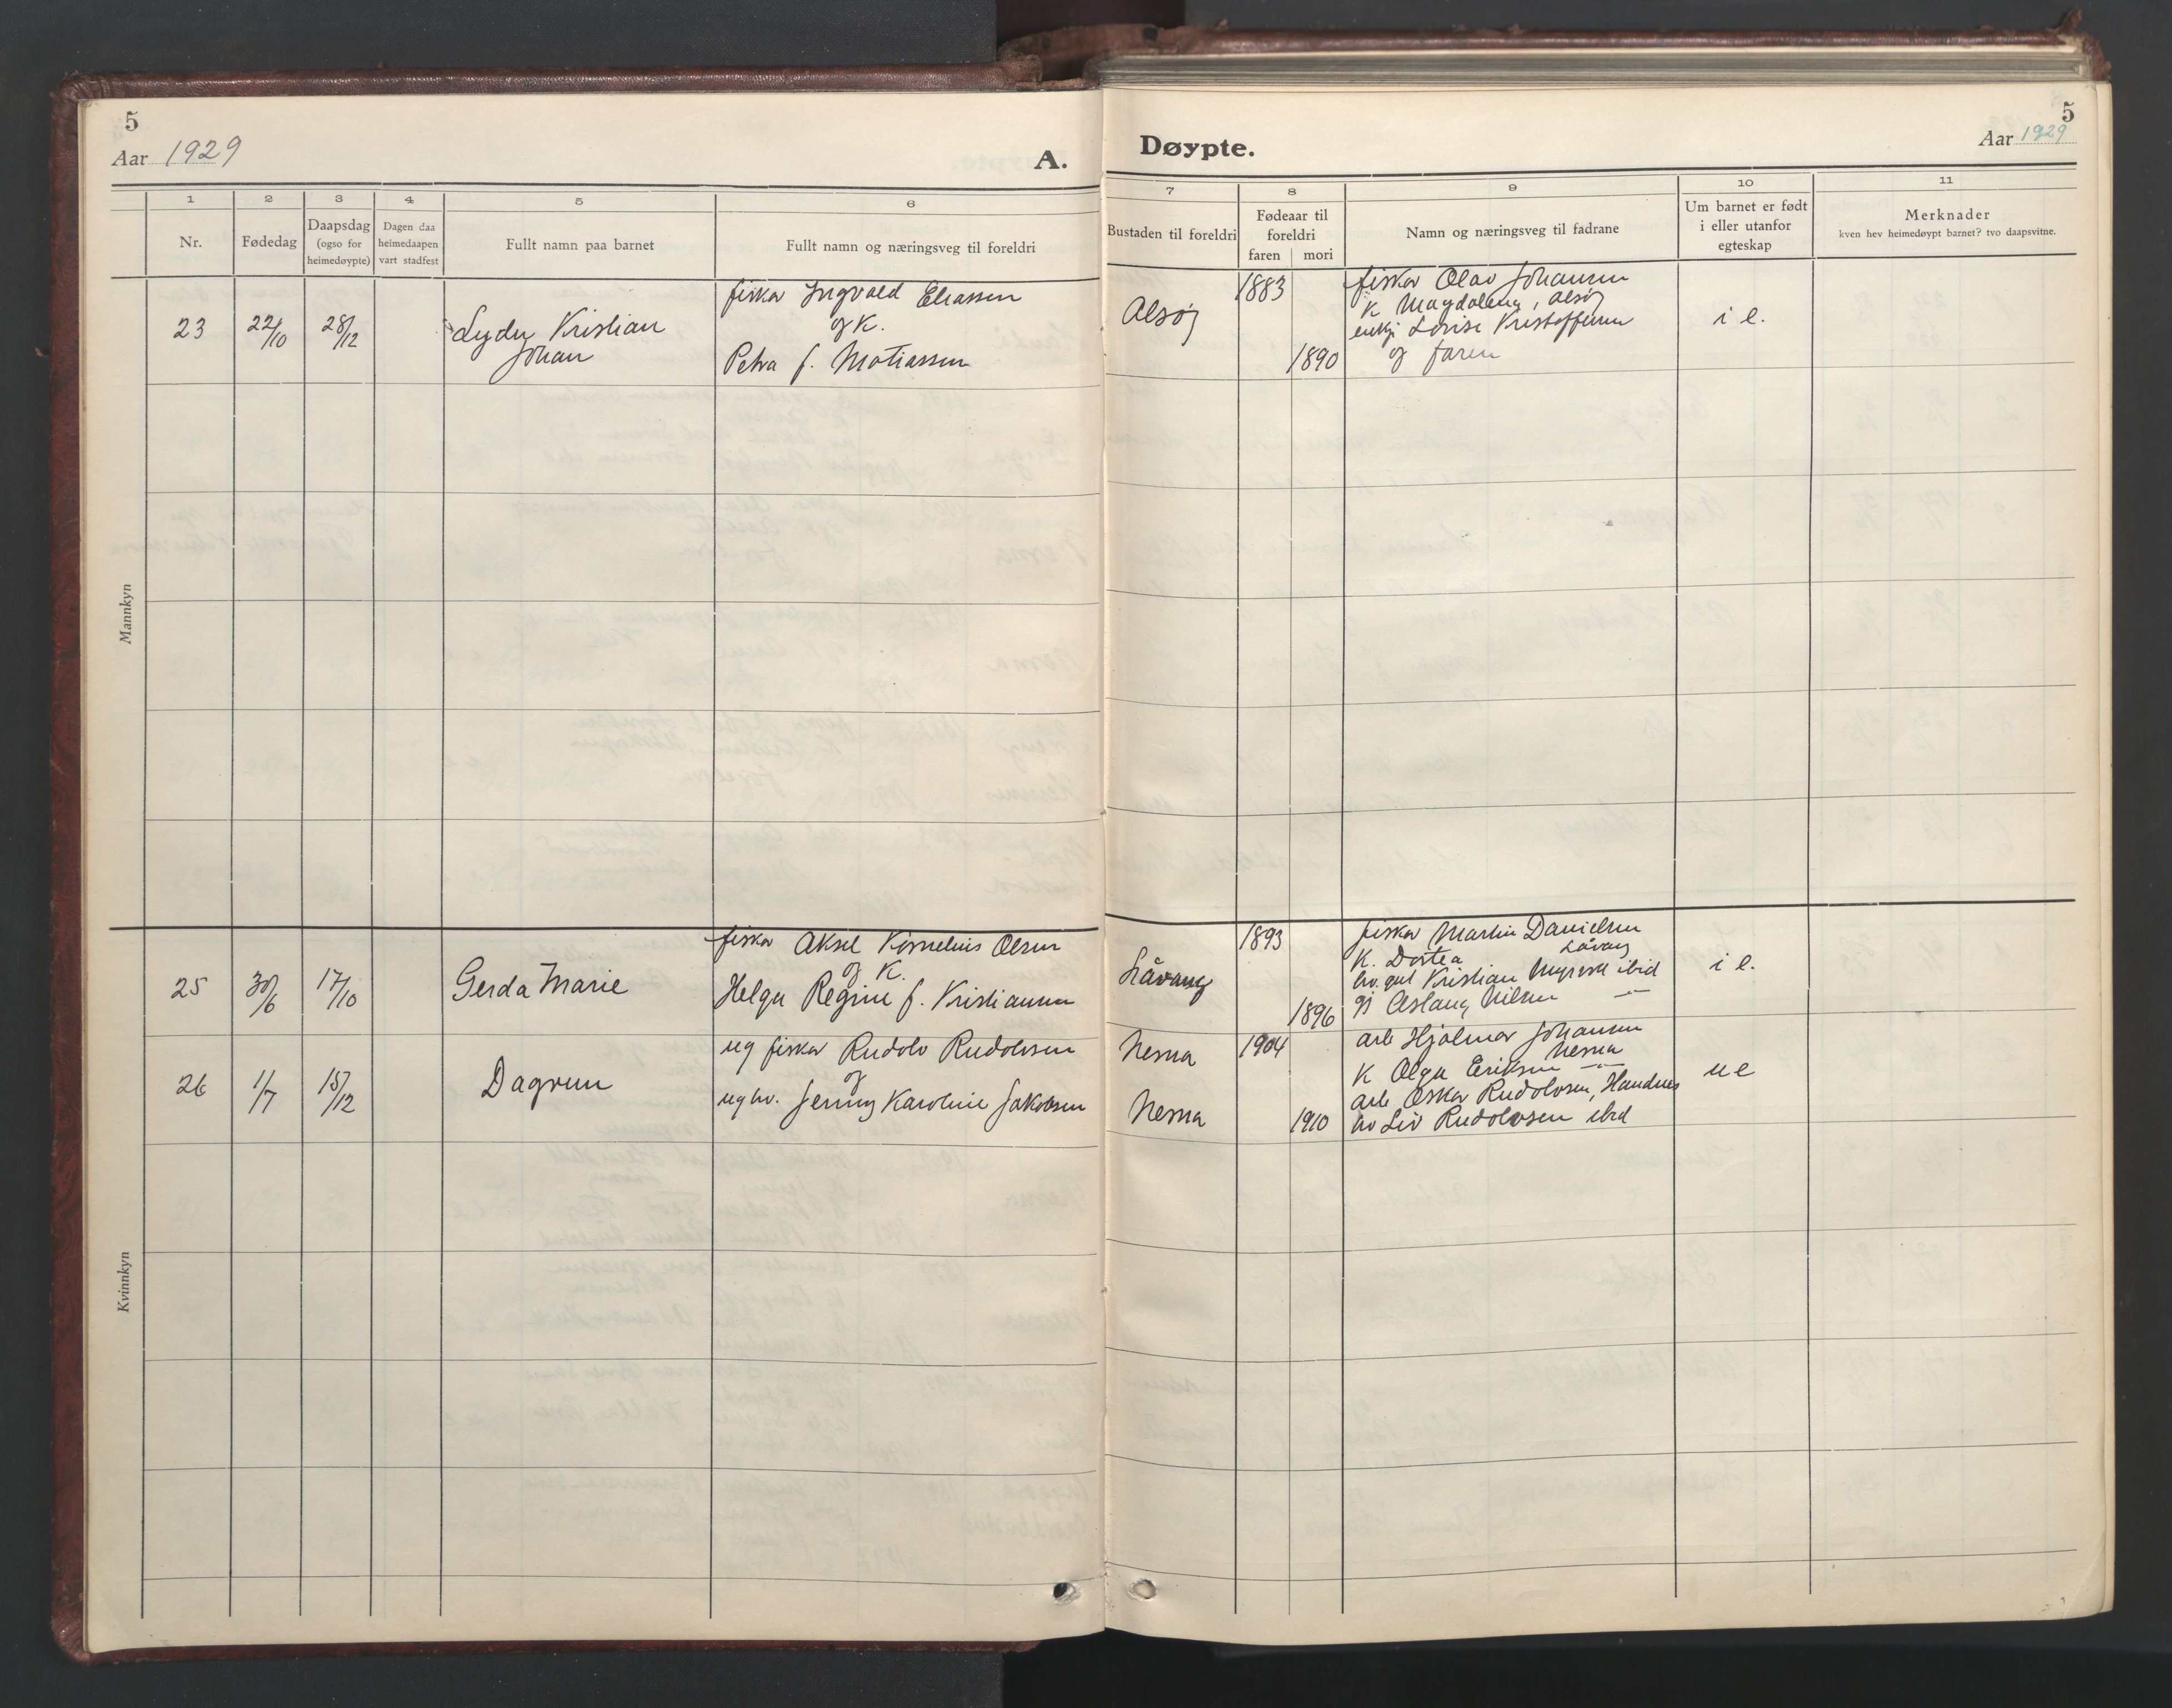 5
Aar 1929
A.
Døypte.
5
Aar 1929
1
2
3
4
5
6
7
8
9
10
11
Nr.
Fødedag
Daapsdag
(ogso for
heimedøypte)
Dagen daa
heimedaapen
vart stadfest
Fullt namn paa barnet
Fullt namn og næringsveg til foreldri
Bustaden til foreldri
Fødeaar til
foreldri
faren
mori
Namn og næringsveg til fadrane
Um barnet er født
i eller utanfor
egteskap
Merknader
kven hev heimedøypt barnet? tvo daapsvitne.
Mannkyn
23
22/10
28/12
Kristian
Johan
fisker Ingvald Eliassen
og k.
Petra f. Matiassen
Alsøy
1883
1890
fisker Olav Johansen
K Magdalena, Alsøy
enkje Lovise Kristoffersen
og faren
i e.
Kvinnkyn
25
30/6
17/10
Gerda Marie
fisker Aksel Kornelius Olsen
og K.
Helga Regine f. Kristiansen
Låvang
1893
1896
fisker Martin Danielsen
K. Dortea Låvang
Kristian ibid
Aslaug Nilsen —"—
i e.
26
1/7
15/12
Dagrun
ug fisker Rudolv Rudolvsen
og
ug hv. Jenny Karoline Jakobsen
Nesna
Nesna
1904
1910
arb Hjalmar Johansen
Nesna
K Olga Eriksen —"—
arb Oskar Rudolvsen, Handnes
hv Liv Rudolvsen ibid
u e